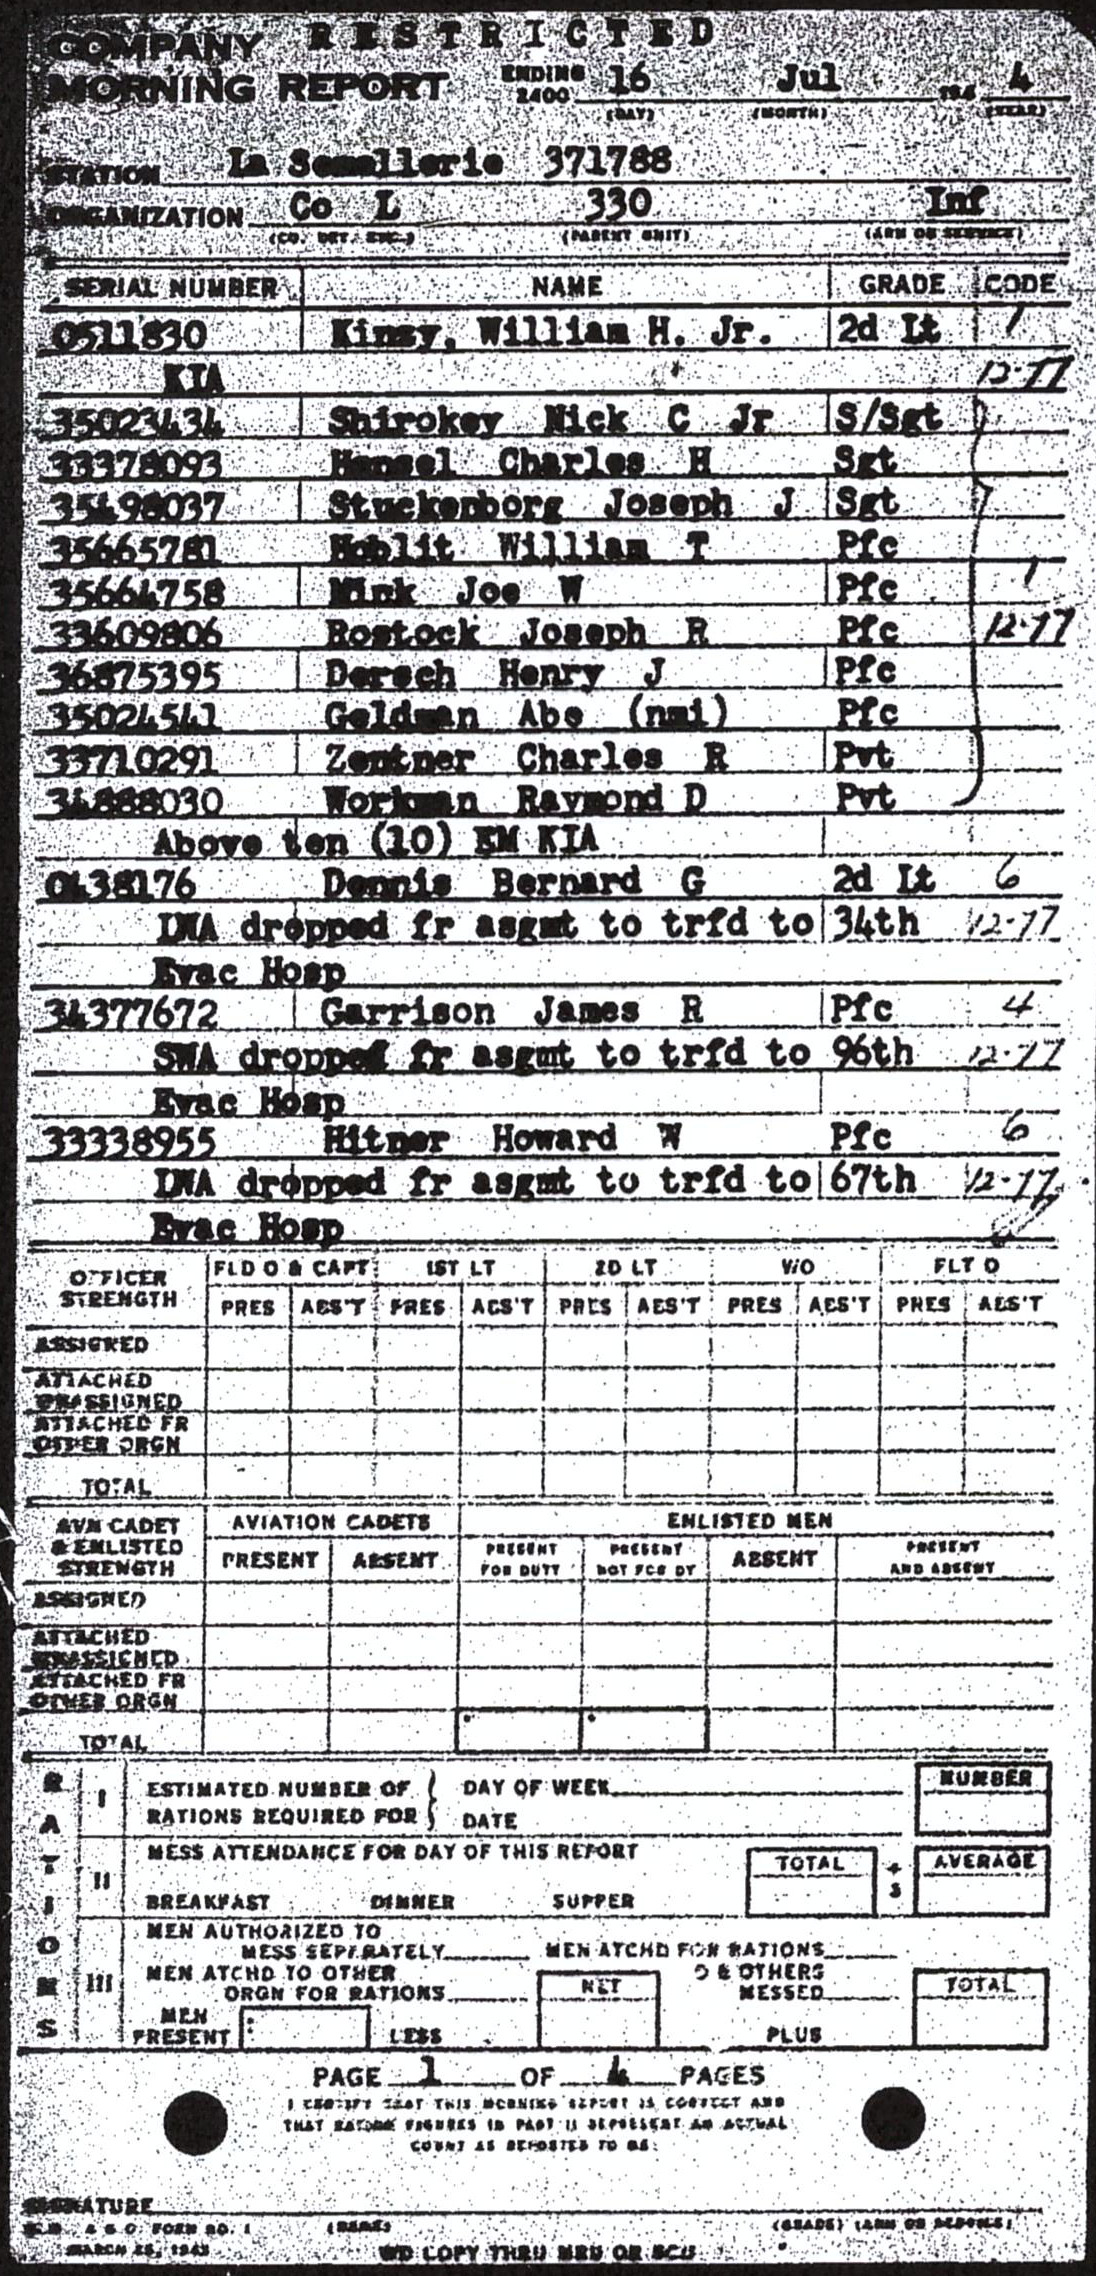 RESTRICTED
COMPANY
MORNING REPORT ENDING 2400 16 Jul 194 4
(DAY) (MONTH) (YEAR)
STATION La Semellerie 371788
ORGANIZATION Co L 330 Inf
(CO. DET. ETC.) (PARENT UNIT) (ARM OR SERVICE)
SERIAL NUMBER NAME GRADE CODE
0511830 Kinzy, William H. Jr. 2d Lt 1
KIA 12-77
35023434 Shirokey Nick C Jr S/Sgt
33378093 Hensel Charles H Sgt
35498037 Stuckenborg Joseph J Sgt
35665781 Hoblit William T Pfc
35664758 Mink Joe W Pfc 1
33609806 Rostock Joseph R Pfc 12-77
36875395 Dersch Henry J Pfc
35024541 Goldman Abe (nmi) Pfc
33710291 Zentner Charles R Pvt
34888030 Workman Raymond D Pvt
Above ten (10) EM KIA
0438176 Dennis Bernard G 2d Lt 6
LWA dropped fr asgmt to trfd to 34th 12-77
Evac Hosp
34377672 Garrison James R Pfc 4
SWA dropped fr asgmt to trfd to 96th 12-77
Evac Hosp
33338955 Hitner Howard W Pfc 6
LWA dropped fr asgmt to trfd to 67th 12-77
Evac Hosp
OFFICER STRENGTH FLD O & CAPT 1ST LT 2D LT W/O FLT O
PRES ABS'T PRES ABS'T PRES ABS'T PRES ABS'T PRES ABS'T
ASSIGNED
ATTACHED
UNASSIGNED
ATTACHED FR
OTHER ORGN
TOTAL
AVN CADET & ENLISTED STRENGTH AVIATION CADETS ENLISTED MEN
PRESENT ABSENT PRESENT FOR DUTY PRESENT NOT FOR DY ABSENT PRESENT AND ABSENT
ASSIGNED
ATTACHED
UNASSIGNED
ATTACHED FR
OTHER ORGN
TOTAL
RATIONS
I ESTIMATED NUMBER OF DAY OF WEEK NUMBER
RATIONS REQUIRED FOR DATE
II MESS ATTENDANCE FOR DAY OF THIS REPORT TOTAL ÷ 3 AVERAGE
BREAKFAST DINNER SUPPER
III MEN AUTHORIZED TO
MESS SEPARATELY MEN ATCHD FOR RATIONS
MEN ATCHD TO OTHER O & OTHERS
ORGN FOR RATIONS NET MESSED TOTAL
MEN
PRESENT LESS PLUS
PAGE 1 OF 4 PAGES
I CERTIFY THAT THIS MORNING REPORT IS CORRECT AND
THAT RATION FIGURES IN PART II REPRESENT AN ACTUAL
COUNT AS REPORTED TO ME:
SIGNATURE
W.D. A G O FORM NO. 1 (NAME) (GRADE) (ARM OR SERVICE)
MARCH 25, 1943
WD COPY THRU MRU OR SCU